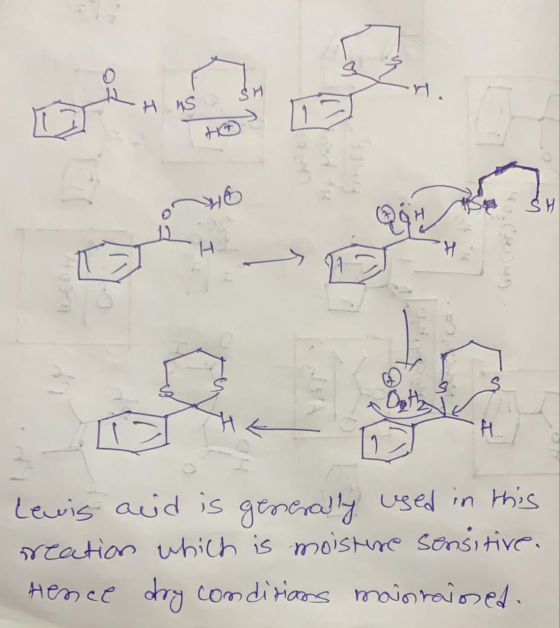 O
H
HS
SH
H⊕
S
S
H.
O
H⊕
H
⊕ OH
H
HS
SH
S
S
H
⊕
OH2
S
S
H
Lewis acid is generally used in this
reation which is moisture sensitive.
Hence dry conditions mainrained.